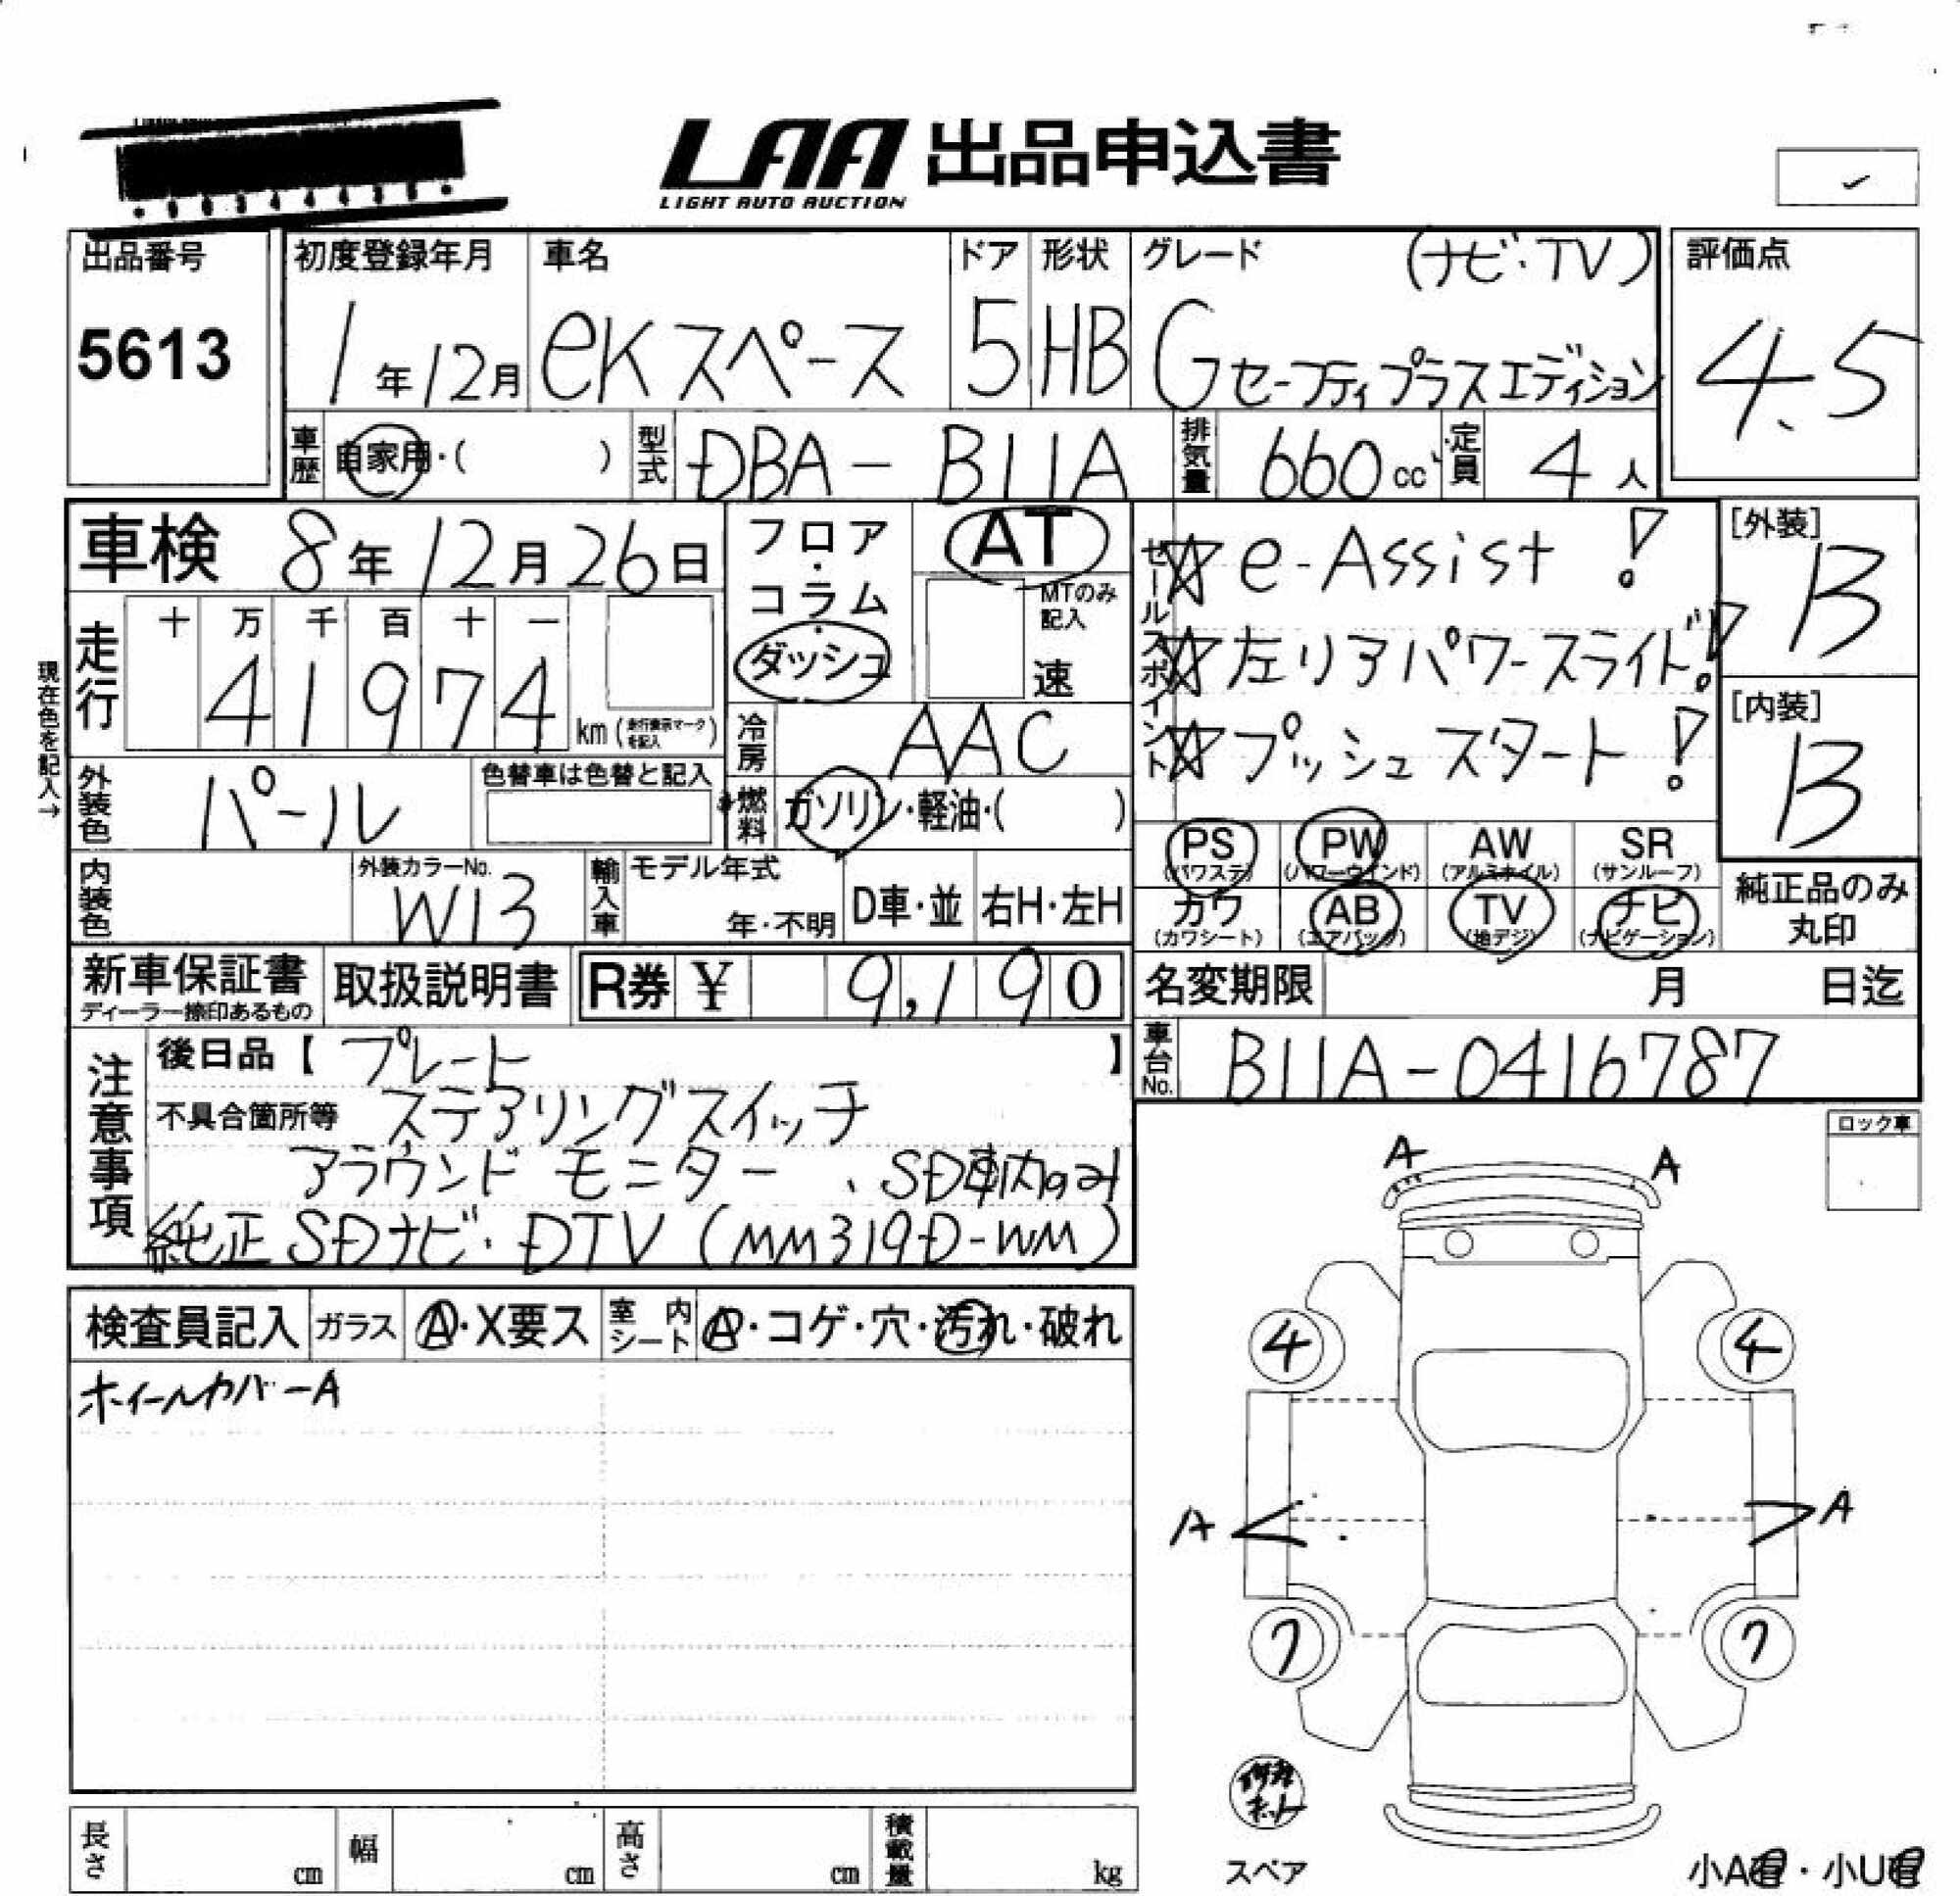 LAA 出品申込書
LIGHT AUTO AUCTION
出品番号
5613
初度登録年月
1年12月
車名
eKスペース
ドア
5
形状
HB
グレード (ナビ・TV)
Gセーフティプラスエディション
評価点
4.5
車歴 自家用・( )
型式 DBA-B11A
排気量 660cc
定員 4人
車検 8年12月26日
走行 十 万 千 百 十 一
41974
km (走行表示マークを記入)
現在色を記入→
外装色 パール
色替車は色替と記入
内装色
外装カラーNo.
W13
フロア・コラム・ダッシュ
AT
MTのみ記入
速
冷房 AAC
燃料 ガソリン・軽油・( )
輸入車 モデル年式
年・不明
D車・並
右H・左H
セールスポイント
☆e-Assist!
☆左リアパワースライド!
☆プッシュスタート!
[外装]
B
[内装]
B
PS (パワステ) PW (パワーウインド) AW (アルミホイル) SR (サンルーフ)
カワ (カワシート) AB (エアバック) TV (地デジ) ナビ (ナビゲーション)
純正品のみ丸印
新車保証書
ディーラー捺印あるもの
取扱説明書
R券 ¥ 9,190
名変期限 月 日迄
車台No. B11A-0416787
注意事項
後日品【 プレート 】
不具合箇所等 ステアリングスイッチ
アラウンドモニター、SD車内のみ
純正SDナビ・DTV (MM319D-WM)
検査員記入 ガラス A・X要ス 室内シート A・コゲ・穴・汚れ・破れ
ホイールカバーA
ロック車
A A
4 4
A A
7 7
スペア
小A有・小U有
長さ cm 幅 cm 高さ cm 積載量 kg